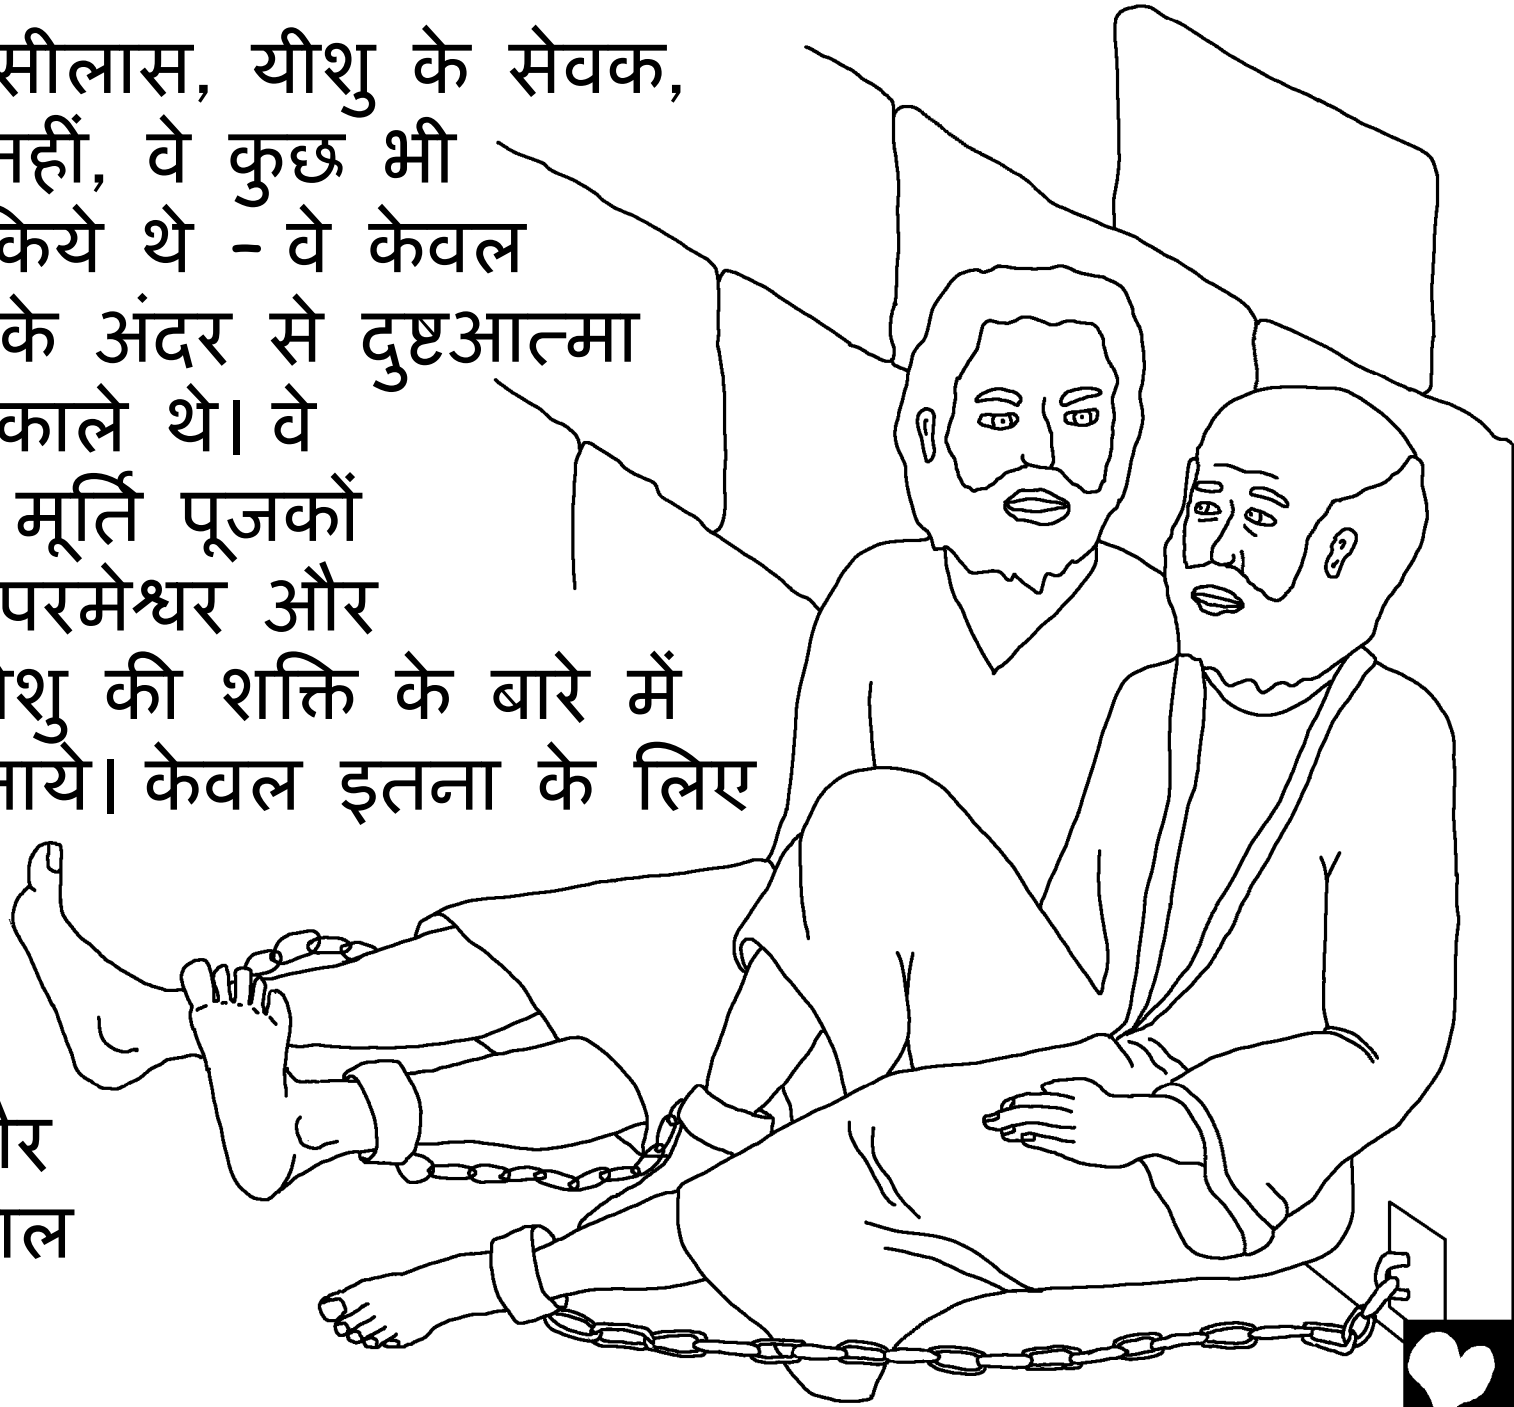 सीलास, यीशु के सेवक,
नहीं, वे कुछ भी
किये थे - वे केवल
के अंदर से दुष्टआत्मा
काले थे। वे
मूर्ति पूजकों
परमेश्वर और
की शक्ति के बारे में
केवल इतना के लिए